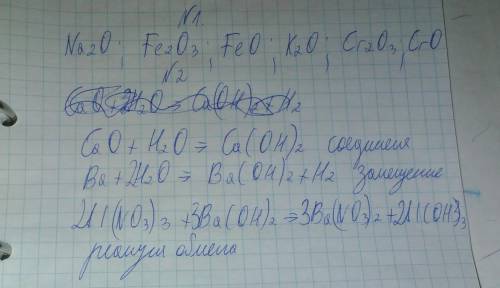 N1.
Na2O; Fe2O3; FeO; K2O; Cr2O3; CrO
N2
CaO + 2H2O => Ca(OH)2 + H2
CaO + H2O => Ca(OH)2 соединения
Ba + 2H2O => Ba(OH)2 + H2 замещение
2Al(NO3)3 + 3Ba(OH)2 => 3Ba(NO3)2 + 2Al(OH)3
реакция обмена